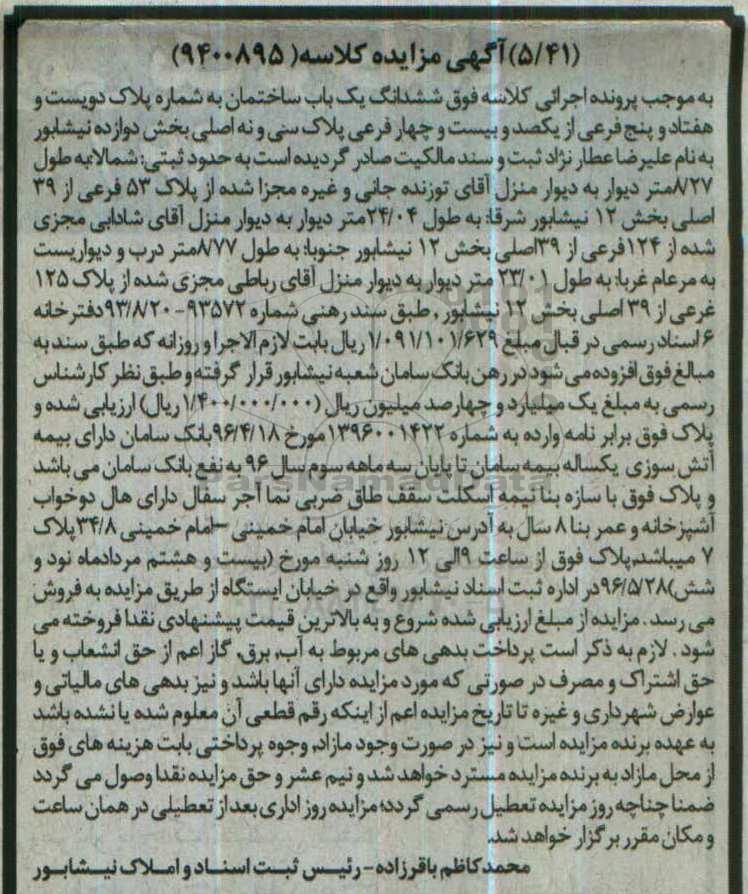 (۵/۴۱)آگهی مزایده کلاسه( ۹۴۰۰۸۹۵)
به موجب پرونده اجرائی کلاسه فوق ششدانگ یک باب ساختمان به شماره پلاک دویست و
هفتاد و پنج فرعی از یکصد و بیست و چهار فرعی پلاک سی و نه اصلی بخش دوازده نیشابور
به نام علیرضا عطار نژاد ثبت و سند مالکیت صادر گردیده است به حدود ثبتی: شمالا: به طول
۸/۲۷متر دیوار به دیوار منزل آقای توزنده جانی و غیره مجزا شده از پلاک ۵۳ فرعی از ۳۹
اصلی بخش ۱۲ نیشابور شرقا: به طول ۲۴/۰۴متر دیوار به دیوار منزل آقای شادابی مجزی
شده از ۱۲۴فرعی از ۳۹اصلی بخش ۱۲ نیشابور جنوبا: به طول ۸/۷۷متر درب و دیواریست
به مرعام غربا: به طول ۲۳/۰۱ متر دیوار به دیوار منزل آقای رباطی مجزی شده از پلاک ۱۲۵
غرعی از ۳۹ اصلی بخش ۱۲ نیشابور , طبق سند رهنی شماره ۹۳۵۷۲-۹۳/۸/۲۰دفترخانه
۶ اسناد رسمی در قبال مبلغ ۱/۰۹۱/۱۰۱/۶۲۹ ریال بابت لازم الاجرا و روزانه که طبق سند به
مبالغ فوق افزوده می شود در رهن بانک سامان شعبه نیشابور قرار گرفته و طبق نظر کارشناس
رسمی به مبلغ یک میلیارد و چهارصد میلیون ریال (۱/۴۰۰/۰۰۰/۰۰۰ریال) ارزیابی شده و
پلاک فوق برابر نامه وارده به شماره ۱۳۹۶۰۰۱۴۲۲مورخ ۹۶/۴/۱۸بانک سامان دارای بیمه
آتش سوزی یکساله بیمه سامان تا پایان سه ماهه سوم سال ۹۶ به نفع بانک سامان می باشد
ParsNamadData
و پلاک فوق با سازه بنا نیمه اسکلت سقف طاق ضربی نما آجر سفال دارای هال دوخواب
آشپزخانه و عمر بنا ۸ سال به آدرس نیشابور خیابان امام خمینی –امام خمینی ۳۴/۸پلاک
۷ میباشد,پلاک فوق از ساعت ۹الی ۱۲ روز شنبه مورخ (بیست و هشتم مردادماه نود و
شش)۹۶/۵/۲۸در اداره ثبت اسناد نیشابور واقع در خیابان ایستگاه از طریق مزایده به فروش
می رسد . مزایده از مبلغ ارزیابی شده شروع و به بالاترین قیمت پیشنهادی نقدا فروخته می
شود . لازم به ذکر است پرداخت بدهی های مربوط به آب, برق, گاز اعم از حق انشعاب و یا
حق اشتراک و مصرف در صورتی که مورد مزایده دارای آنها باشد و نیز بدهی های مالیاتی و
عوارض شهرداری و غیره تا تاریخ مزایده اعم از اینکه رقم قطعی آن معلوم شده یا نشده باشد
به عهده برنده مزایده است و نیز در صورت وجود مازاد, وجوه پرداختی بابت هزینه های فوق
از محل مازاد به برنده مزایده مسترد خواهد شد و نیم عشر و حق مزایده نقدا وصول می گردد
ضمنا چناچه روز مزایده تعطیل رسمی گردد؛ مزایده روز اداری بعد از تعطیلی در همان ساعت
و مکان مقرر برگزار خواهد شد.
محمد کاظم باقرزاده - رئیس ثبت اسناد و املاک نیشابور